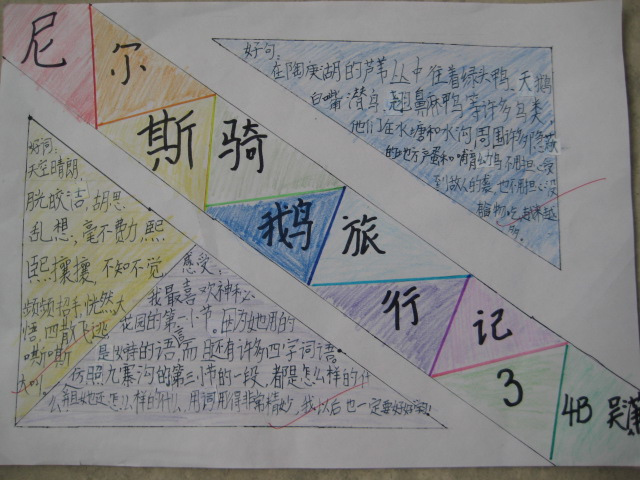 尼尔斯骑鹅旅行记3
4B 吴
好句:
在陶庚湖的芦苇丛中住着绿头鸭、天鹅
白嘴潜鸟、翘鼻麻鸭等许多鸟类,
他们在水塘和水沟周围许多隐蔽
的地方产蛋和哺育幼鸟不用担心受
到敌人的袭,也不用担心没
植物吃,越来越
好词:
天空晴朗,
月光皎洁,胡思
乱想,毫不费力,熙
熙攘攘,不知不觉,
频频招手,恍然大
悟,四散飞逃,
嘶嘶
大叫
感受:
我最喜欢神秘
花园的第一小节,因为她用的
是女诗的语言,而且还有许多四字词语。
仿照九寨沟的第三小节的一段,都是怎么样的什
么,用词用得非常精妙,我以后也一定要好好学习